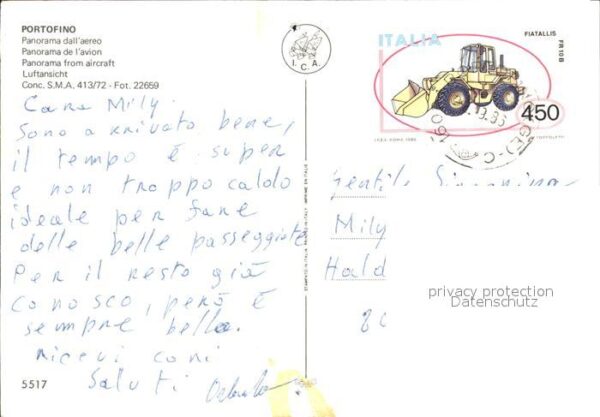 PORTOFINO
Panorama dall'aereo
Panorama de l'avion
Panorama from aircraft
Luftansicht
Conc. S.M.A. 413/72 - Fot. 22659
I.C.A.
ITALIA
FIATALLIS
FR 10 B
450
Cara Mily.
Sono arrivato bene,
il tempo è super
e non troppo caldo
ideale per fare
delle belle passeggiate
Per il resto già
conosco, però è
sempre bella.
Ricevi cari
Saluti
Gentile Signorina
Mily
Hald
privacy protection
Datenschutz
8
5517